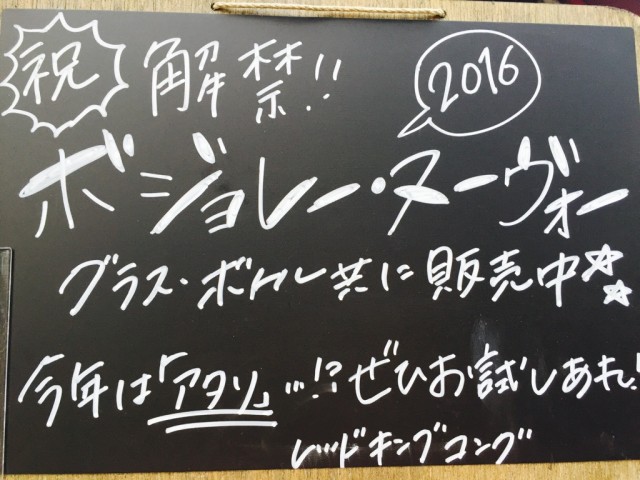 祝 解禁!! 2016
ボジョレー・ヌーヴォー
グラス・ボトル共に販売中☆☆
今年は「アタリ」…!?ぜひお試しあれ!
レッドキングコング